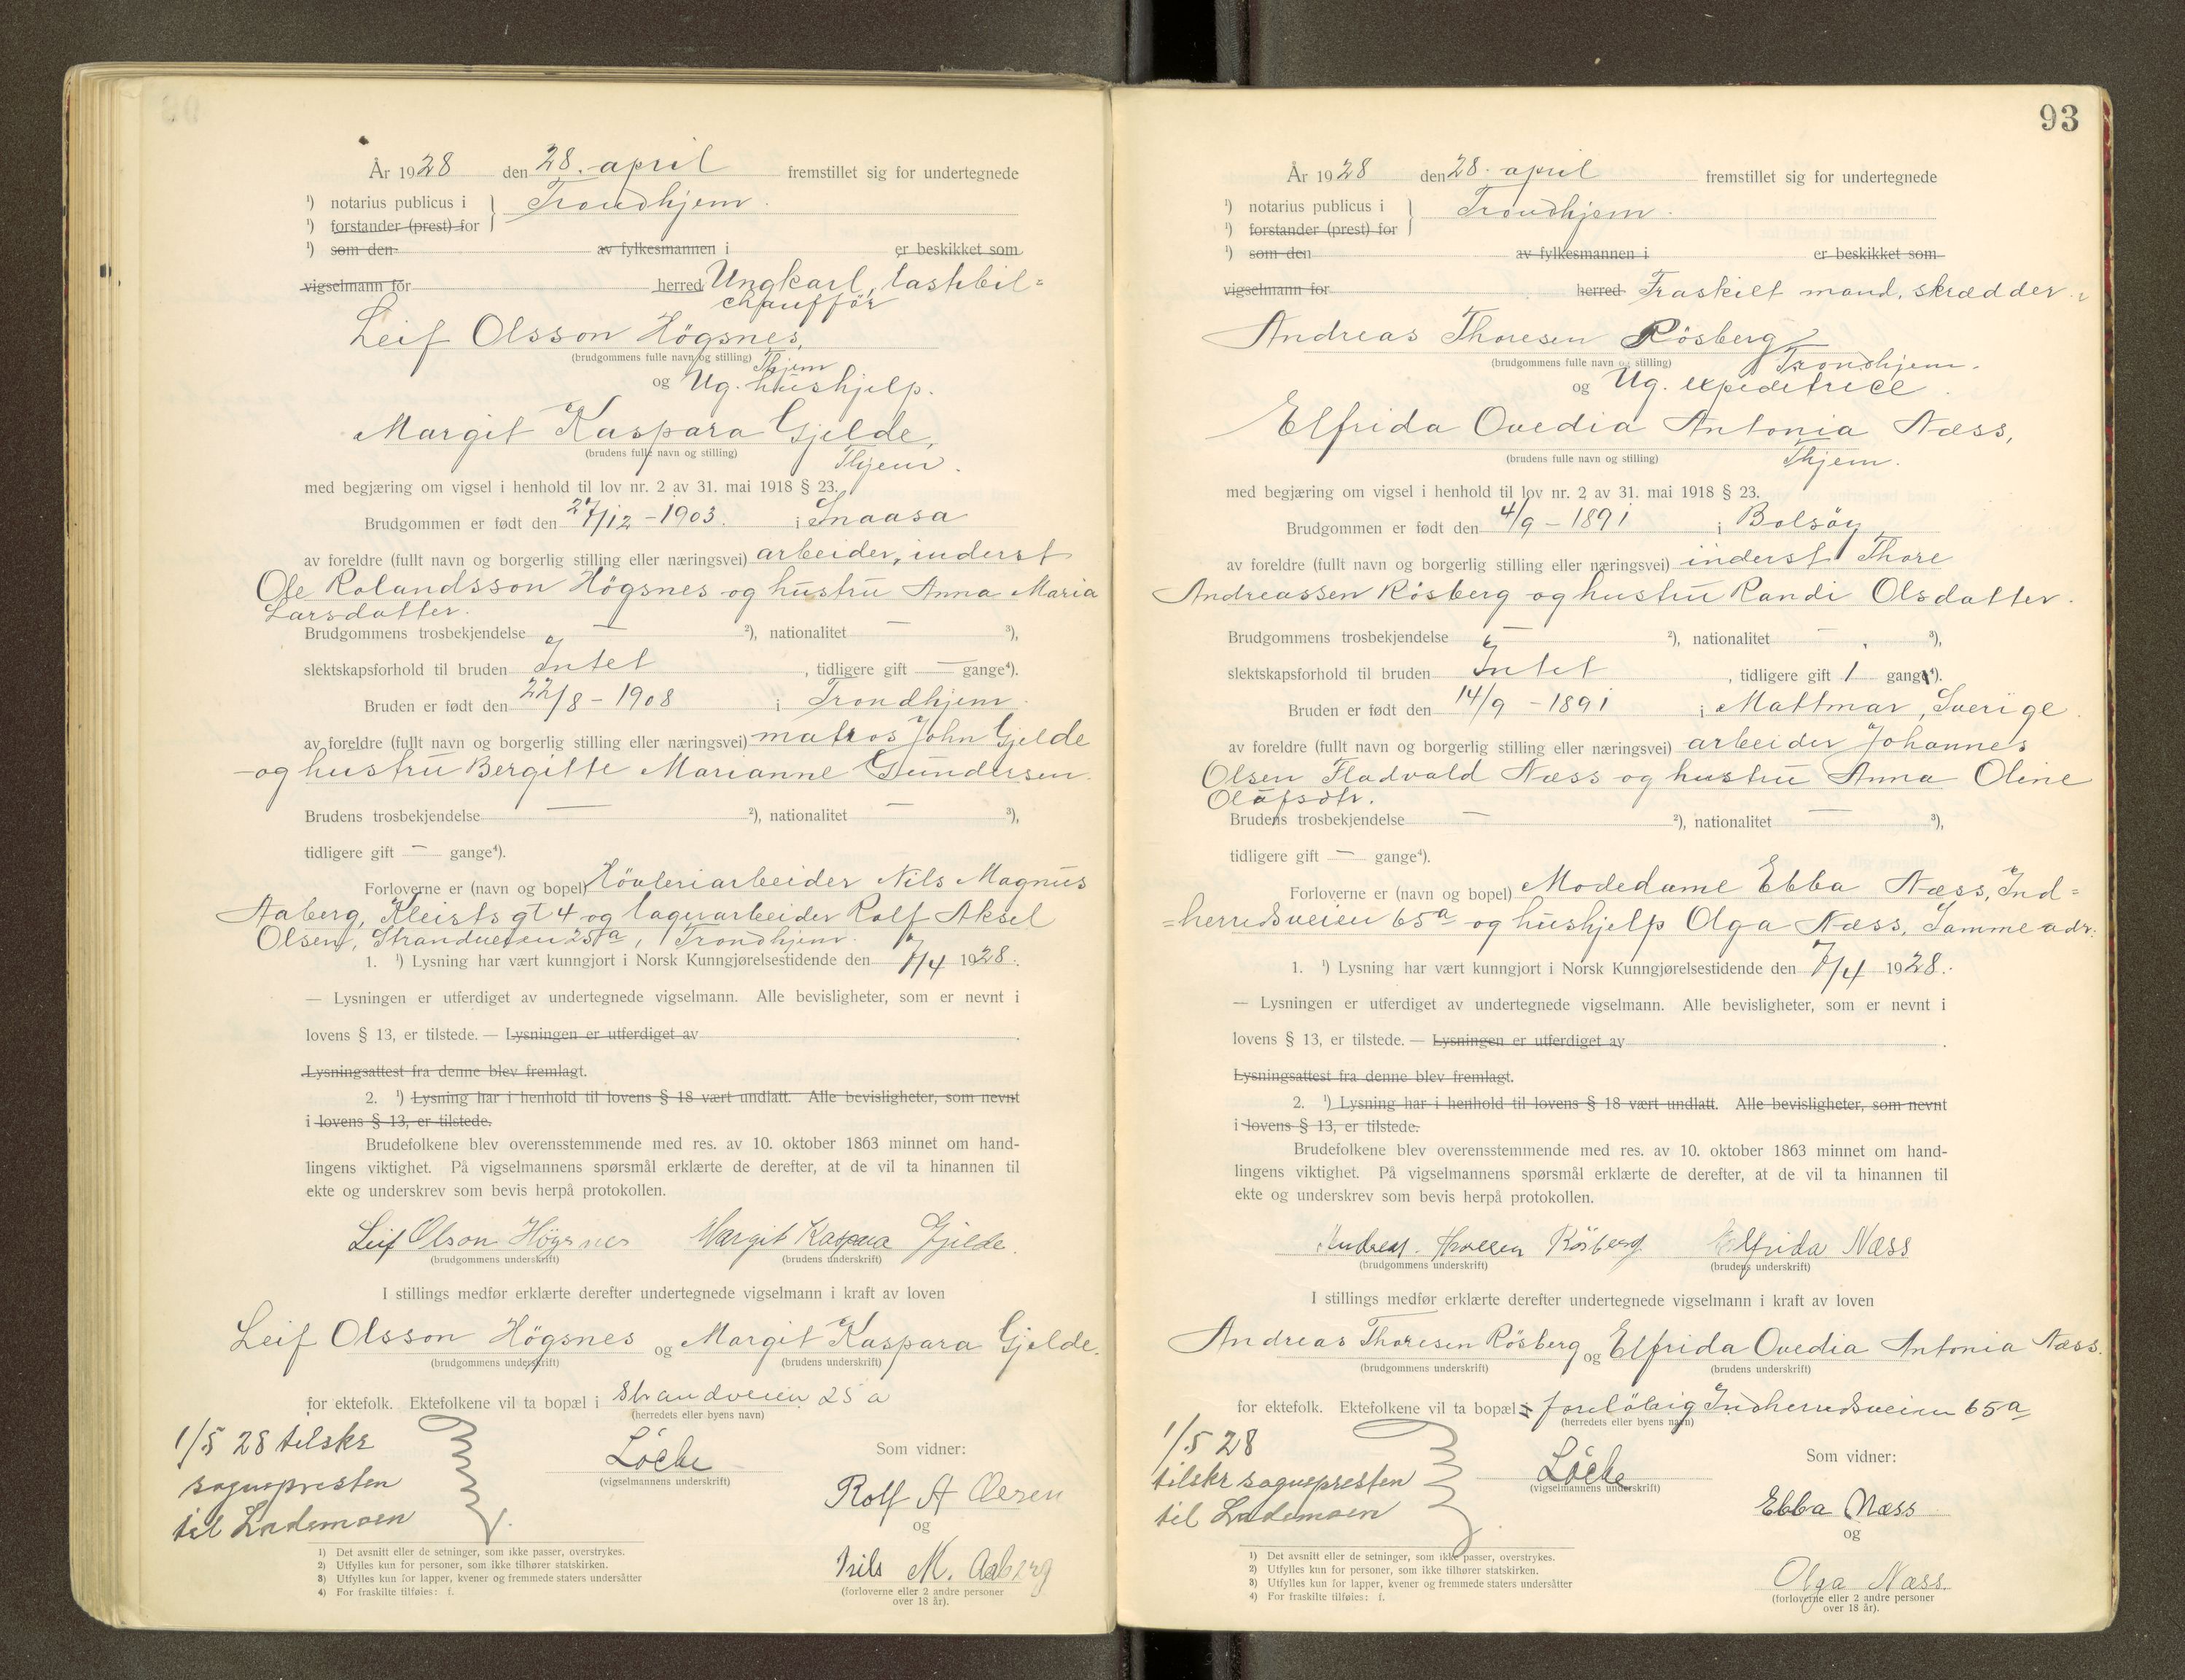 År 1928 den 28. april fremstillet sig for undertegnede
¹) notarius publicus i Trondhjem.
¹) forstander (prest) for
¹) som den av fylkesmannen i er beskikket som
vigselmann for herred Ungkarl, lastebil=
chauffør
Leif Olsson Högsnes,
(brudgommens fulle navn og stilling) Thjem
og Ug. hushjelp.
Margit Kaspara Gjelde,
(brudens fulle navn og stilling) Thjem.
med begjæring om vigsel i henhold til lov nr. 2 av 31. mai 1918 § 23.
Brudgommen er født den 27/12 - 1903. i Snaasa
av foreldre (fullt navn og borgerlig stilling eller næringsvei) arbeider, inderst
Ole Rolandsson Högsnes og hustru Anna Maria
Larsdatter.
Brudgommens trosbekjendelse — ²), nationalitet — ³),
slektskapsforhold til bruden Intet, tidligere gift — gange⁴).
Bruden er født den 22/8 - 1908 i Trondhjem.
av foreldre (fullt navn og borgerlig stilling eller næringsvei) matros John Gjelde
og hustru Bergitte Marianne Gundersen.
Brudens trosbekjendelse — ²), nationalitet — ³),
tidligere gift — gange⁴).
Forloverne er (navn og bopel) Hövleriarbeider Nils Magnus
Aaberg, Kleists gt 4 og lagerarbeider Rolf Aksel
Olsen, Strandveien 25a, Trondhjem.
1. ¹) Lysning har vært kunngjort i Norsk Kunngjørelsestidende den 7/4 1928.
— Lysningen er utferdiget av undertegnede vigselmann. Alle bevisligheter, som er nevnt i
lovens § 13, er tilstede. — Lysningen er utferdiget av .
Lysningsattest fra denne blev fremlagt.
2. ¹) Lysning har i henhold til lovens § 18 vært undlatt. Alle bevisligheter, som nevnt
i lovens § 13, er tilstede.
Brudefolkene blev overensstemmende med res. av 10. oktober 1863 minnet om hand-
lingens viktighet. På vigselmannens spørsmål erklærte de derefter, at de vil ta hinannen til
ekte og underskrev som bevis herpå protokollen.
Leif Olson Högsnes Margit Kaspara Gjelde.
(brudgommens underskrift) (brudens underskrift)
I stillings medfør erklærte derefter undertegnede vigselmann i kraft av loven
Leif Olsson Högsnes og Margit Kaspara Gjelde.
(brudgommens underskrift) (brudens underskrift)
for ektefolk. Ektefolkene vil ta bopæl i Strandveien 25 a
(herredets eller byens navn)
1/5 28 tilskr
sognepresten
til Lademoen
Löcke
(vigselmannens underskrift)
Som vidner:
Rolf A Olsen
og
Nils M. Aaberg
(forloverne eller 2 andre personer
over 18 år).
1) Det avsnitt eller de setninger, som ikke passer, overstrykes.
2) Utfylles kun for personer, som ikke tilhører statskirken.
3) Utfylles kun for lapper, kvener og fremmede staters undersåtter
4) For fraskilte tilføies: f.
93
År 1928 den 28. april fremstillet sig for undertegnede
¹) notarius publicus i Trondhjem.
¹) forstander (prest) for
¹) som den av fylkesmannen i er beskikket som
vigselmann for herred Fraskilt mand, skrædder
Andreas Thoresen Rösberg
(brudgommens fulle navn og stilling) Trondhjem.
og Ug. expeditrice.
Elfrida Ovedia Antonia Næss,
(brudens fulle navn og stilling) Thjem.
med begjæring om vigsel i henhold til lov nr. 2 av 31. mai 1918 § 23.
Brudgommen er født den 4/9 - 1891 i Bolsöy
av foreldre (fullt navn og borgerlig stilling eller næringsvei) inderst Thore
Andreassen Rösberg og hustru Randi Olsdatter.
Brudgommens trosbekjendelse — ²), nationalitet — ³),
slektskapsforhold til bruden Intet, tidligere gift 1 gang⁴).
Bruden er født den 14/9 - 1891 i Mattmar, Sverige.
av foreldre (fullt navn og borgerlig stilling eller næringsvei) arbeider Johannes
Olsen Fladvald Næss og hustru Anna Oline
Olafsdtr.
Brudens trosbekjendelse — ²), nationalitet — ³),
tidligere gift — gange⁴).
Forloverne er (navn og bopel) Modedame Ebba Næss, Ind=
=herredsveien 65a og hushjelp Olga Næss, samme adr.
1. ¹) Lysning har vært kunngjort i Norsk Kunngjørelsestidende den 7/4 1928.
— Lysningen er utferdiget av undertegnede vigselmann. Alle bevisligheter, som er nevnt i
lovens § 13, er tilstede. — Lysningen er utferdiget av .
Lysningsattest fra denne blev fremlagt.
2. ¹) Lysning har i henhold til lovens § 18 vært undlatt. Alle bevisligheter, som nevnt
i lovens § 13, er tilstede.
Brudefolkene blev overensstemmende med res. av 10. oktober 1863 minnet om hand-
lingens viktighet. På vigselmannens spørsmål erklærte de derefter, at de vil ta hinannen til
ekte og underskrev som bevis herpå protokollen.
Andreas Thoresen Rösberg Elfrida Næss
(brudgommens underskrift) (brudens underskrift)
I stillings medfør erklærte derefter undertegnede vigselmann i kraft av loven
Andreas Thoresen Rösberg og Elfrida Ovedia Antonia Næss.
(brudgommens underskrift) (brudens underskrift)
for ektefolk. Ektefolkene vil ta bopæl i foreløbig Indherredsveien 65a
(herredets eller byens navn)
1/5 28
tilskr sognepresten
til Lademoen
Löcke
(vigselmannens underskrift)
Som vidner:
Ebba Næss
og
Olga Næss.
(forloverne eller 2 andre personer
over 18 år).
1) Det avsnitt eller de setninger, som ikke passer, overstrykes.
2) Utfylles kun for personer, som ikke tilhører statskirken.
3) Utfylles kun for lapper, kvener og fremmede staters undersåtter
4) For fraskilte tilføies: f.